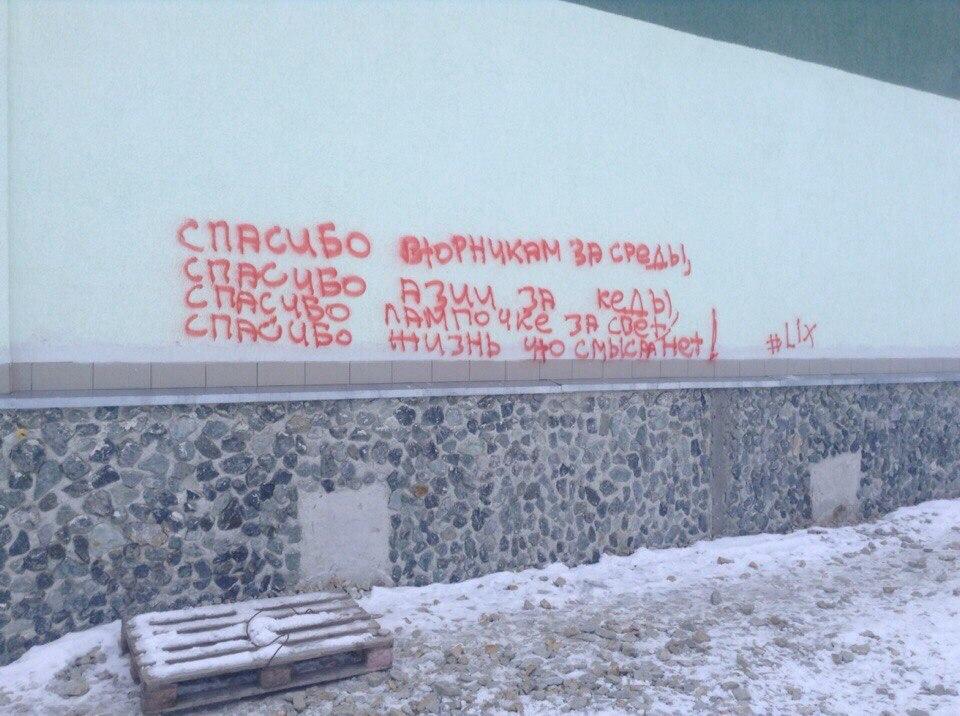 СПАСИБО ВТОРНИКАМ ЗА СРЕДЫ,
СПАСИБО АЗИИ ЗА КЕДЫ,
СПАСИБО ЛАМПОЧКЕ ЗА СВЕТ,
СПАСИБО ЖИЗНЬ ЧТО СМЫСЛА НЕТ!
#Lix